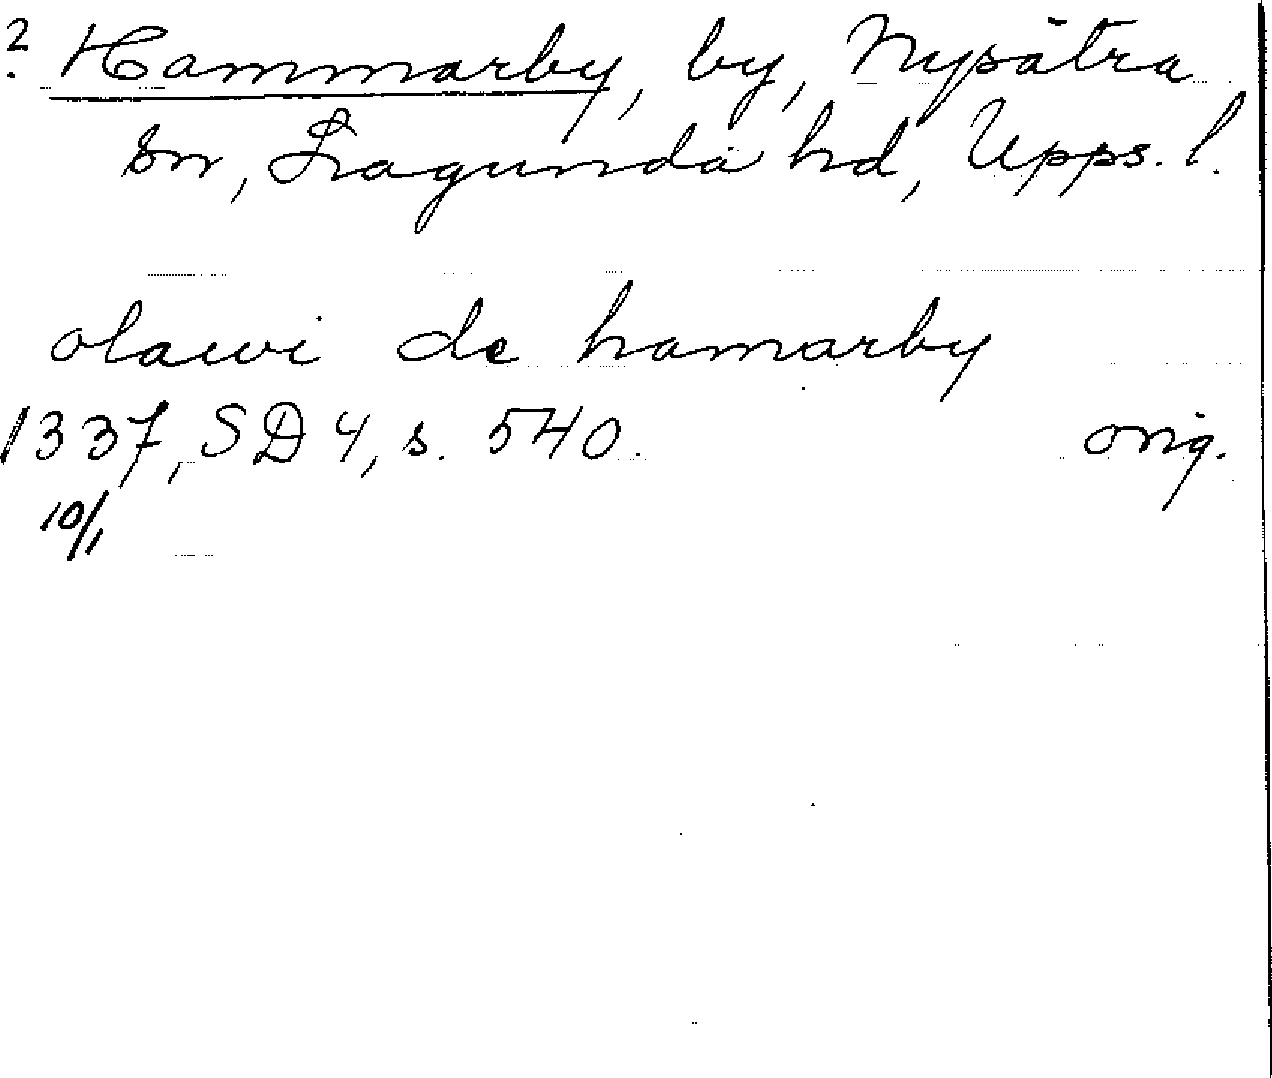 ? Hammarby, by, Nysätra
sn, Lagunda hd, Upps. l.
olawi de hamarby
1337, SD 4, s. 540. orig.
10/1